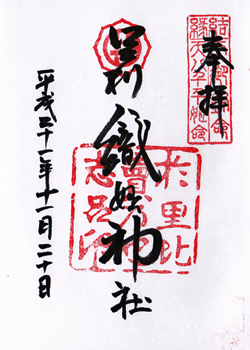 奉拝
足利織姫神社
平成二十一年十一月二十日
於里比